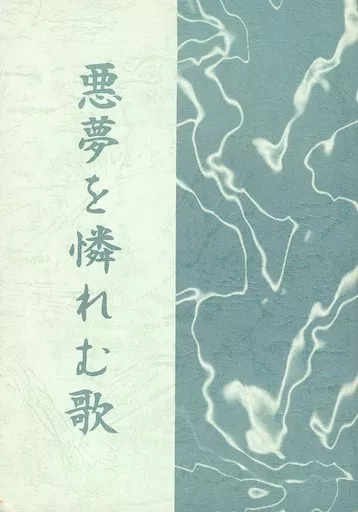 悪夢を憐れむ歌